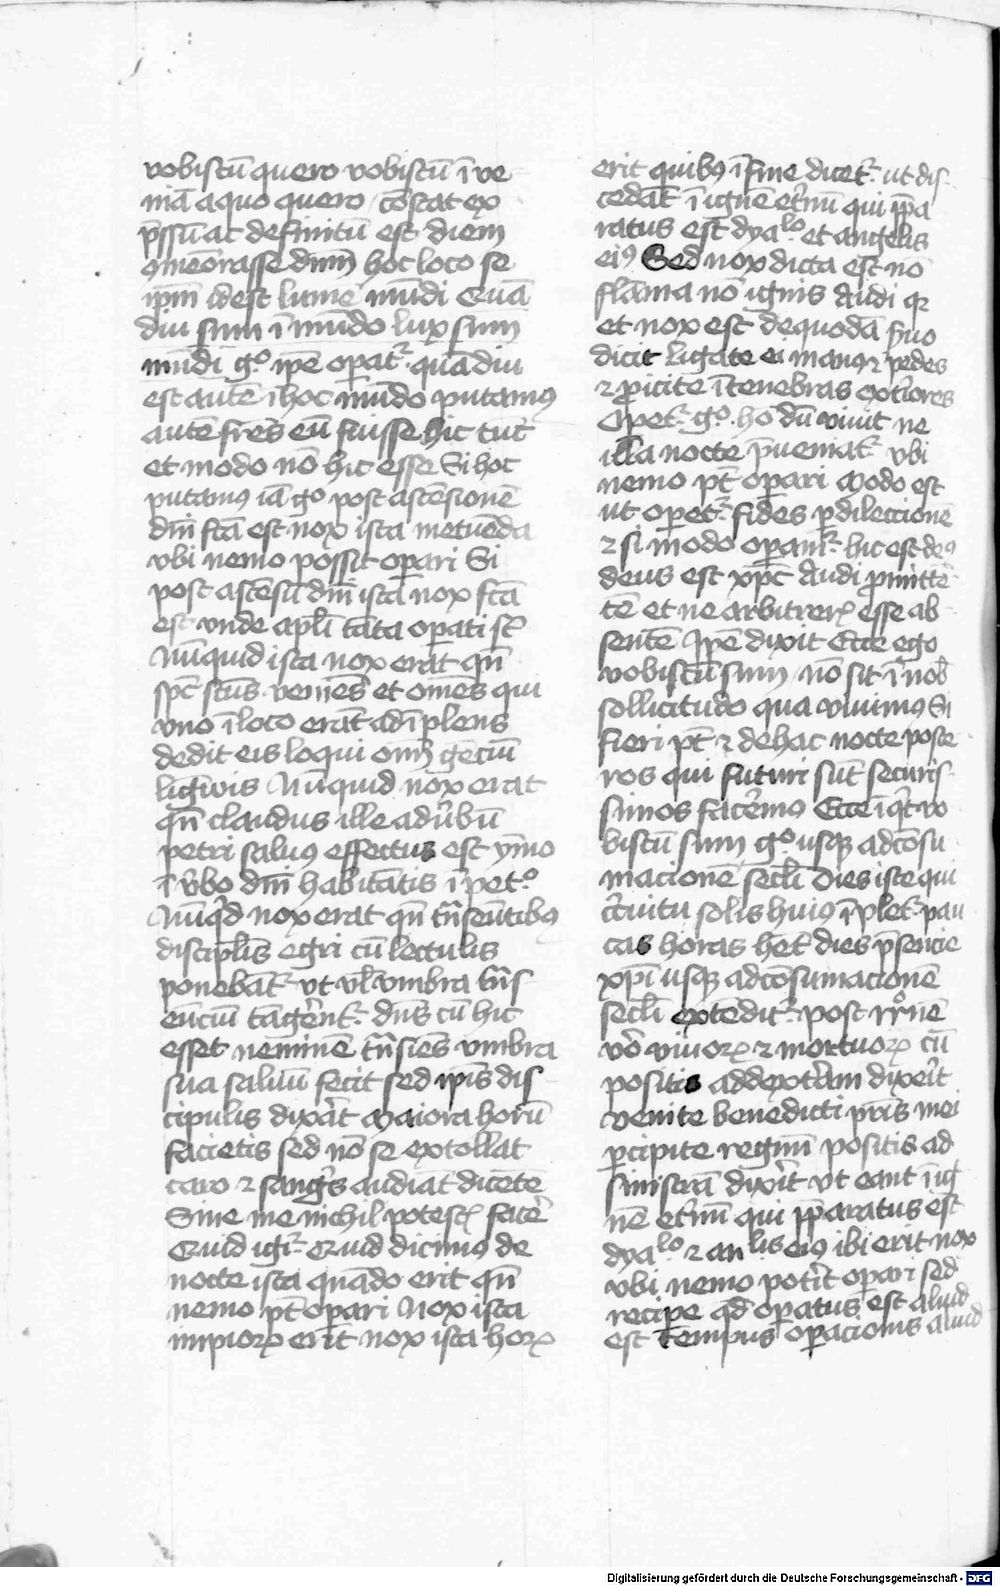 vobiscū quero vobiscū īve
niā a quo quero / cōstat ex
p̄ssū ac definitū est diem
ꝯmēorasse dnm̄ hoc loco se
ip̄m idest lumē mūdi Quā
diu sum ī mūdo lux sum
mūdi gͦ ip̄e opat᷑ quādiu
est autē ī hoc mūdo putamꝰ
autē fr̄es eū fuisse hic tūc
et modo nō hic esse Si hoc
putamꝰ iā gͦ post ascēsionē
dn̄i fc̄a est nox ista metuēda
vbi nemo possit opari Si
post ascēsū dn̄i ista nox fc̄a
est vnde apl̄i tāta opati st̄
Nūquid ista nox erat qn̄
spc̄ scūs veniēs et omēs qui
vno ī loco erāt adīplens
dedit eis loqui om̄ gēciū
ligwis Nūquid nox erat
qn̄ claudus ille ad v̄bū
petri saluꝰ effectus est ymo
ī v̄bo dn̄i habitātis ī petͦ
Nūqͥd nox erat qn̄ tn̄seūtibꝰ
discipl̄is egri cū lectulis
ponebāt᷑ vt vl̄ vmbra tn̄s-
eūciū tāger̄ent᷑ dn̄s cū hic
esset neminē tn̄siēs vmbra
sua saluū fecit sed ip̄is dis-
cipulis dixāt Maiora horū
facietis sed nō se extollat
caro ⁊ sangͥs audiat dicētē
Sine me nichil potestꝭ facē
Quid igͥt᷑ Quid dicimꝰ de
nocte ista quādo erit qn̄
nemo pt̄ opari Nox ista
impioꝝ erit nox ista hoꝝ
erit quibꝰ ī fine dicet᷑ ut dis-
cedāt ī ignē et̄nū qui pp̄a
ratus est dyaˡᵒ et angelis
eiꝰ Sed nox dicta est nō
flāma nō ignis Audi qꝛ
et nox est de quodā s̄uo
dicit ligate ei manꝰ ⁊ pedes
⁊ ꝓicite ī tenebras ext̄iores
Opet᷑ gͦ hō dū viuit ne
illa nocte p̄ueniat᷑ vbi
nemo pt̄ opari Modo est
ut opet᷑ fides ꝑ dileccionē
⁊ si modo opam᷑ hic est deꝰ
deus est xp̄c Audi ꝓmittē
tē et ne arbitrerꝭ esse ab
sentē Ip̄e dixit Ecce ego
vobiscū sum nō sit ī nob̄
sollicitudo qua viuimꝰ Si
fieri pt̄ ⁊ de hac nocte poste
ros qui futuri sūt securis-
simos facēmꝰ Ecce īqͥt vo
biscū sum gͦ usqꝫ ad cōsu
macionē secl̄i Dies iste qui
cͥcuitu solis huiꝰ īplet᷑ pau
cas horas het̄ dies p̄sencie
xp̄i usqꝫ ad cōsumacionē
secl̄i extēdit᷑ post rr̄onē
vō viuoꝝ ⁊ mortuoꝝ cū
positis ad dext̄am dixeīt
venite benedicti pr̄is mei
ꝑcipite regnū positis ad
sinistrā dixīt vt eant ī ig
nē et̄nū qui pp̄aratus est
dyaˡᵒ ⁊ anˡⁱˢ eiꝰ ibi erit nox
vbi nemo potīt opari sed
recipe qd̄ opatus est aliud
est tempus opacionis aliud